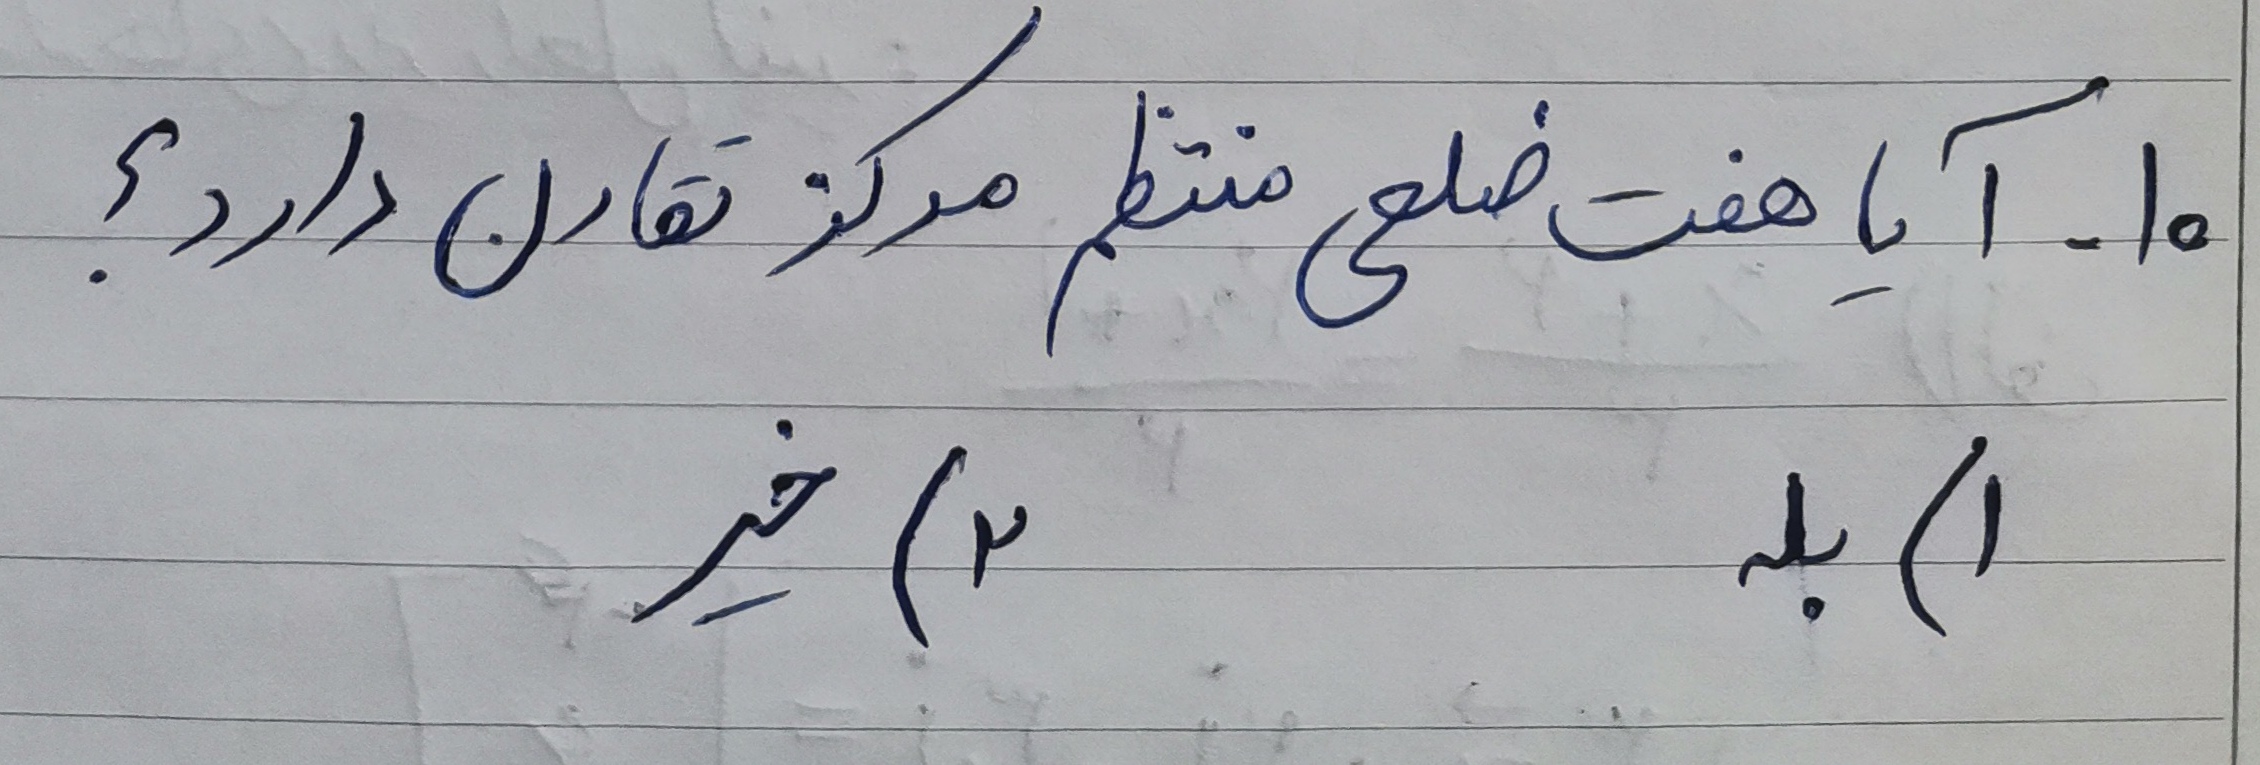 ۱۰- آیا هفت ضلعی منتظم مرکز تقارن دارد؟
۱) بله ۲) خیر